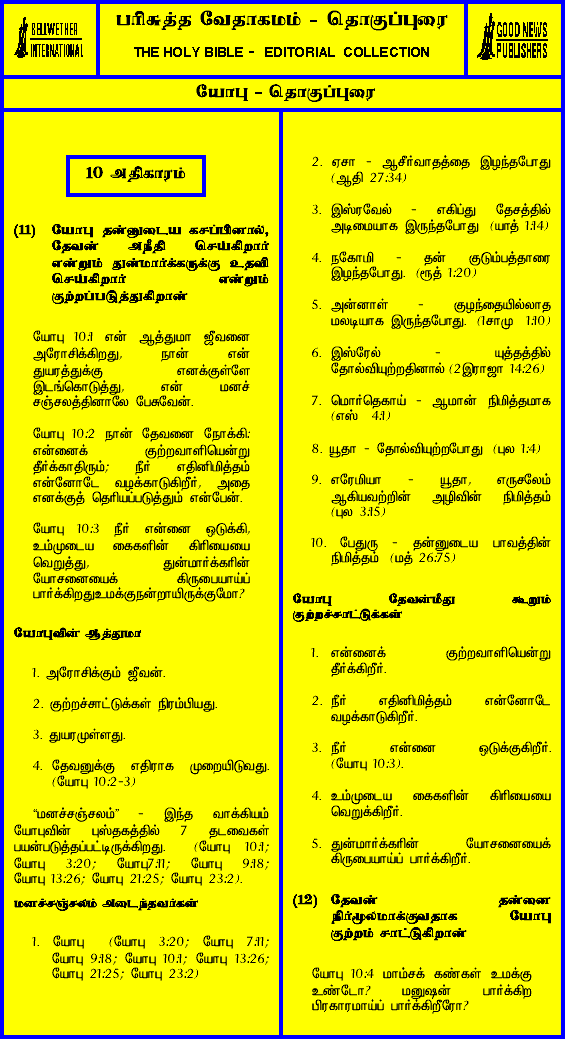 BELLWETHER
INTERNATIONAL
பரிசுத்த வேதாகமம் - தொகுப்புரை
THE HOLY BIBLE - EDITORIAL COLLECTION
GOOD NEWS
PUBLISHERS
யோபு - தொகுப்புரை
10 அதிகாரம்
(11) யோபு தன்னுடைய கசப்பினால்,
தேவன் அநீதி செய்கிறார்
என்றும் துன்மார்க்கருக்கு உதவி
செய்கிறார் என்றும்
குற்றப்படுத்துகிறான்
யோபு 10:1 என் ஆத்துமா ஜீவனை
அரோசிக்கிறது, நான் என்
துயரத்துக்கு எனக்குள்ளே
இடங்கொடுத்து, என் மனச்
சஞ்சலத்தினாலே பேசுவேன்.
யோபு 10:2 நான் தேவனை நோக்கி:
என்னைக் குற்றவாளியென்று
தீர்க்காதிரும்; நீர் எதினிமித்தம்
என்னோடே வழக்காடுகிறீர், அதை
எனக்குத் தெரியப்படுத்தும் என்பேன்.
யோபு 10:3 நீர் என்னை ஒடுக்கி,
உம்முடைய கைகளின் கிரியையை
வெறுத்து, துன்மார்க்கரின்
யோசனையைக் கிருபையாய்ப்
பார்க்கிறதுஉமக்குநன்றாயிருக்குமோ?
யோபுவின் ஆத்துமா
1. அரோசிக்கும் ஜீவன்.
2. குற்றச்சாட்டுக்கள் நிரம்பியது.
3. துயரமுள்ளது.
4. தேவனுக்கு எதிராக முறையிடுவது.
(யோபு 10:2-3)
“மனச்சஞ்சலம்” - இந்த வாக்கியம்
யோபுவின் புஸ்தகத்தில் 7 தடவைகள்
பயன்படுத்தப்பட்டிருக்கிறது. (யோபு 10:1;
யோபு 3:20; யோபு7:11; யோபு 9:18;
யோபு 13:26; யோபு 21:25; யோபு 23:2).
மனச்சஞ்சலம் அடைந்தவர்கள்
1. யோபு (யோபு 3:20; யோபு 7:11;
யோபு 9:18; யோபு 10:1; யோபு 13:26;
யோபு 21:25; யோபு 23:2)
2. ஏசா - ஆசீர்வாதத்தை இழந்தபோது
(ஆதி 27:34)
3. இஸ்ரவேல் - எகிப்து தேசத்தில்
அடிமையாக இருந்தபோது (யாத் 1:14)
4. நகோமி - தன் குடும்பத்தாரை
இழந்தபோது. (ரூத் 1:20)
5. அன்னாள் - குழந்தையில்லாத
மலடியாக இருந்தபோது. (1சாமு 1:10)
6. இஸ்ரேல் - யுத்தத்தில்
தோல்வியுற்றதினால் (2இராஜா 14:26)
7. மொர்தெகாய் - ஆமான் நிமித்தமாக
(எஸ் 4:1)
8. யூதா - தோல்வியுற்றபோது (புல 1:4)
9. எரேமியா - யூதா, எருசலேம்
ஆகியவற்றின் அழிவின் நிமித்தம்
(புல 3:15)
10. பேதுரு - தன்னுடைய பாவத்தின்
நிமித்தம் (மத் 26:75)
யோபு தேவன்மீது கூறும்
குற்றச்சாட்டுக்கள்
1. என்னைக் குற்றவாளியென்று
தீர்க்கிறீர்.
2. நீர் எதினிமித்தம் என்னோடே
வழக்காடுகிறீர்.
3. நீர் என்னை ஒடுக்குகிறீர்.
(யோபு 10:3).
4. உம்முடைய கைகளின் கிரியையை
வெறுக்கிறீர்.
5. துன்மார்க்கரின் யோசனையைக்
கிருபையாய்ப் பார்க்கிறீர்.
(12) தேவன் தன்னை
நிர்மூலமாக்குவதாக யோபு
குற்றம் சாட்டுகிறான்
யோபு 10:4 மாம்சக் கண்கள் உமக்கு
உண்டோ? மனுஷன் பார்க்கிற
பிரகாரமாய்ப் பார்க்கிறீரோ?